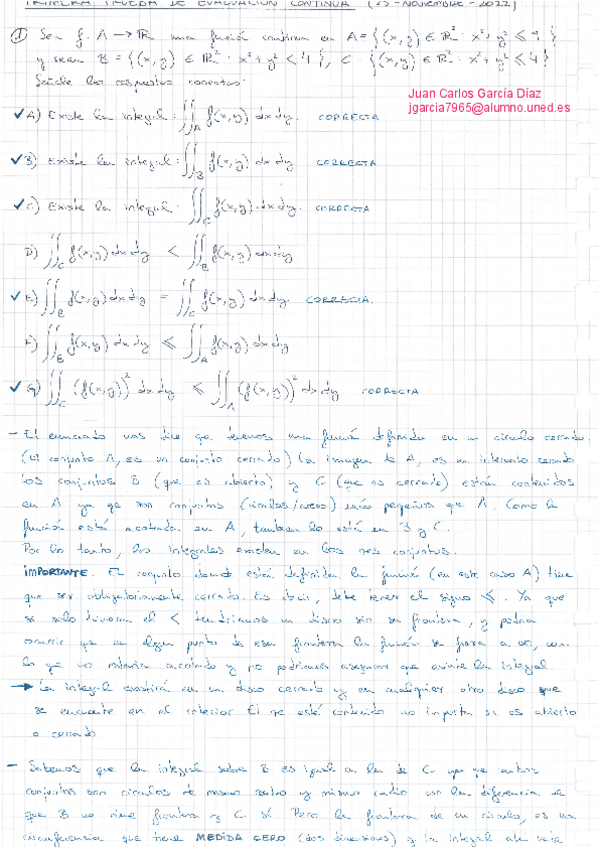 PRIMERA PRUEBA DE EVALUACIÓN CONTINUA (25-NOVIEMBRE-2022)
① Sea f: A → ℝ una función continua en A = {(x,y) ∈ ℝ² : x²+y² ≤ 9}
y sean B = {(x,y) ∈ ℝ² : x²+y² < 4}, C = {(x,y) ∈ ℝ² : x²+y² ≤ 4}
Señale las respuestas correctas:
Juan Carlos García Díaz
jgarcia7965@alumno.uned.es
✓ A) Existe la integral: ∬_A f(x,y) dx dy. CORRECTA
✓ B) Existe la integral: ∬_B f(x,y) dx dy CORRECTA
✓ C) Existe la integral: ∬_C f(x,y) dx dy. CORRECTA
D) ∬_C f(x,y) dx dy < ∬_B f(x,y) dx dy
✓ E) ∬_B f(x,y) dx dy = ∬_C f(x,y) dx dy. CORRECTA.
F) ∬_B f(x,y) dx dy ≤ ∬_A f(x,y) dx dy
✓ G) ∬_C (f(x,y))² dx dy ≤ ∬_A (f(x,y))² dx dy CORRECTA
– El enunciado nos dice qe tenemos una función definida en un círculo cerrado
(El conjunto A, es un conjunto cerrado) la imagen de A, es un intervalo cerrado
los conjuntos B (que es abierto) y C (que es cerrado) están contenidos
en A ya qe son conjuntos (círculos) más pequeños que A. Como la
función está acotada en A, tambien lo está en B y C.
Por lo tanto, las integrales existen en los tres conjuntos.
IMPORTANTE. El conjunto donde está definida la función (en este caso A) tiene
que ser obligatoriamente cerrado. Es decir, debe tener el signo ≤. Ya que
si solo tuviera el < tendríamos un disco sin su frontera, y podría
ocurrir que en algun punto de esa frontera la función se fuera a ∞, con
lo que no estaría acotada y no podríamos asegurar que existe la integral
→ La integral existirá en un disco cerrado y en cualquier otro disco que
se encuentre en el interior El qe está contenido no importa si es abierto
o cerrado
– Sabemos que la integral sobre B es igual a la de C ya que ambos
conjuntos son círculos de mismo centro y mismo radio con la diferencia de
que B no tiene frontera y C sí. Pero la frontera de un círculo, es una
circunferencia que tiene MEDIDA CERO (dos dimensiones) y la integral